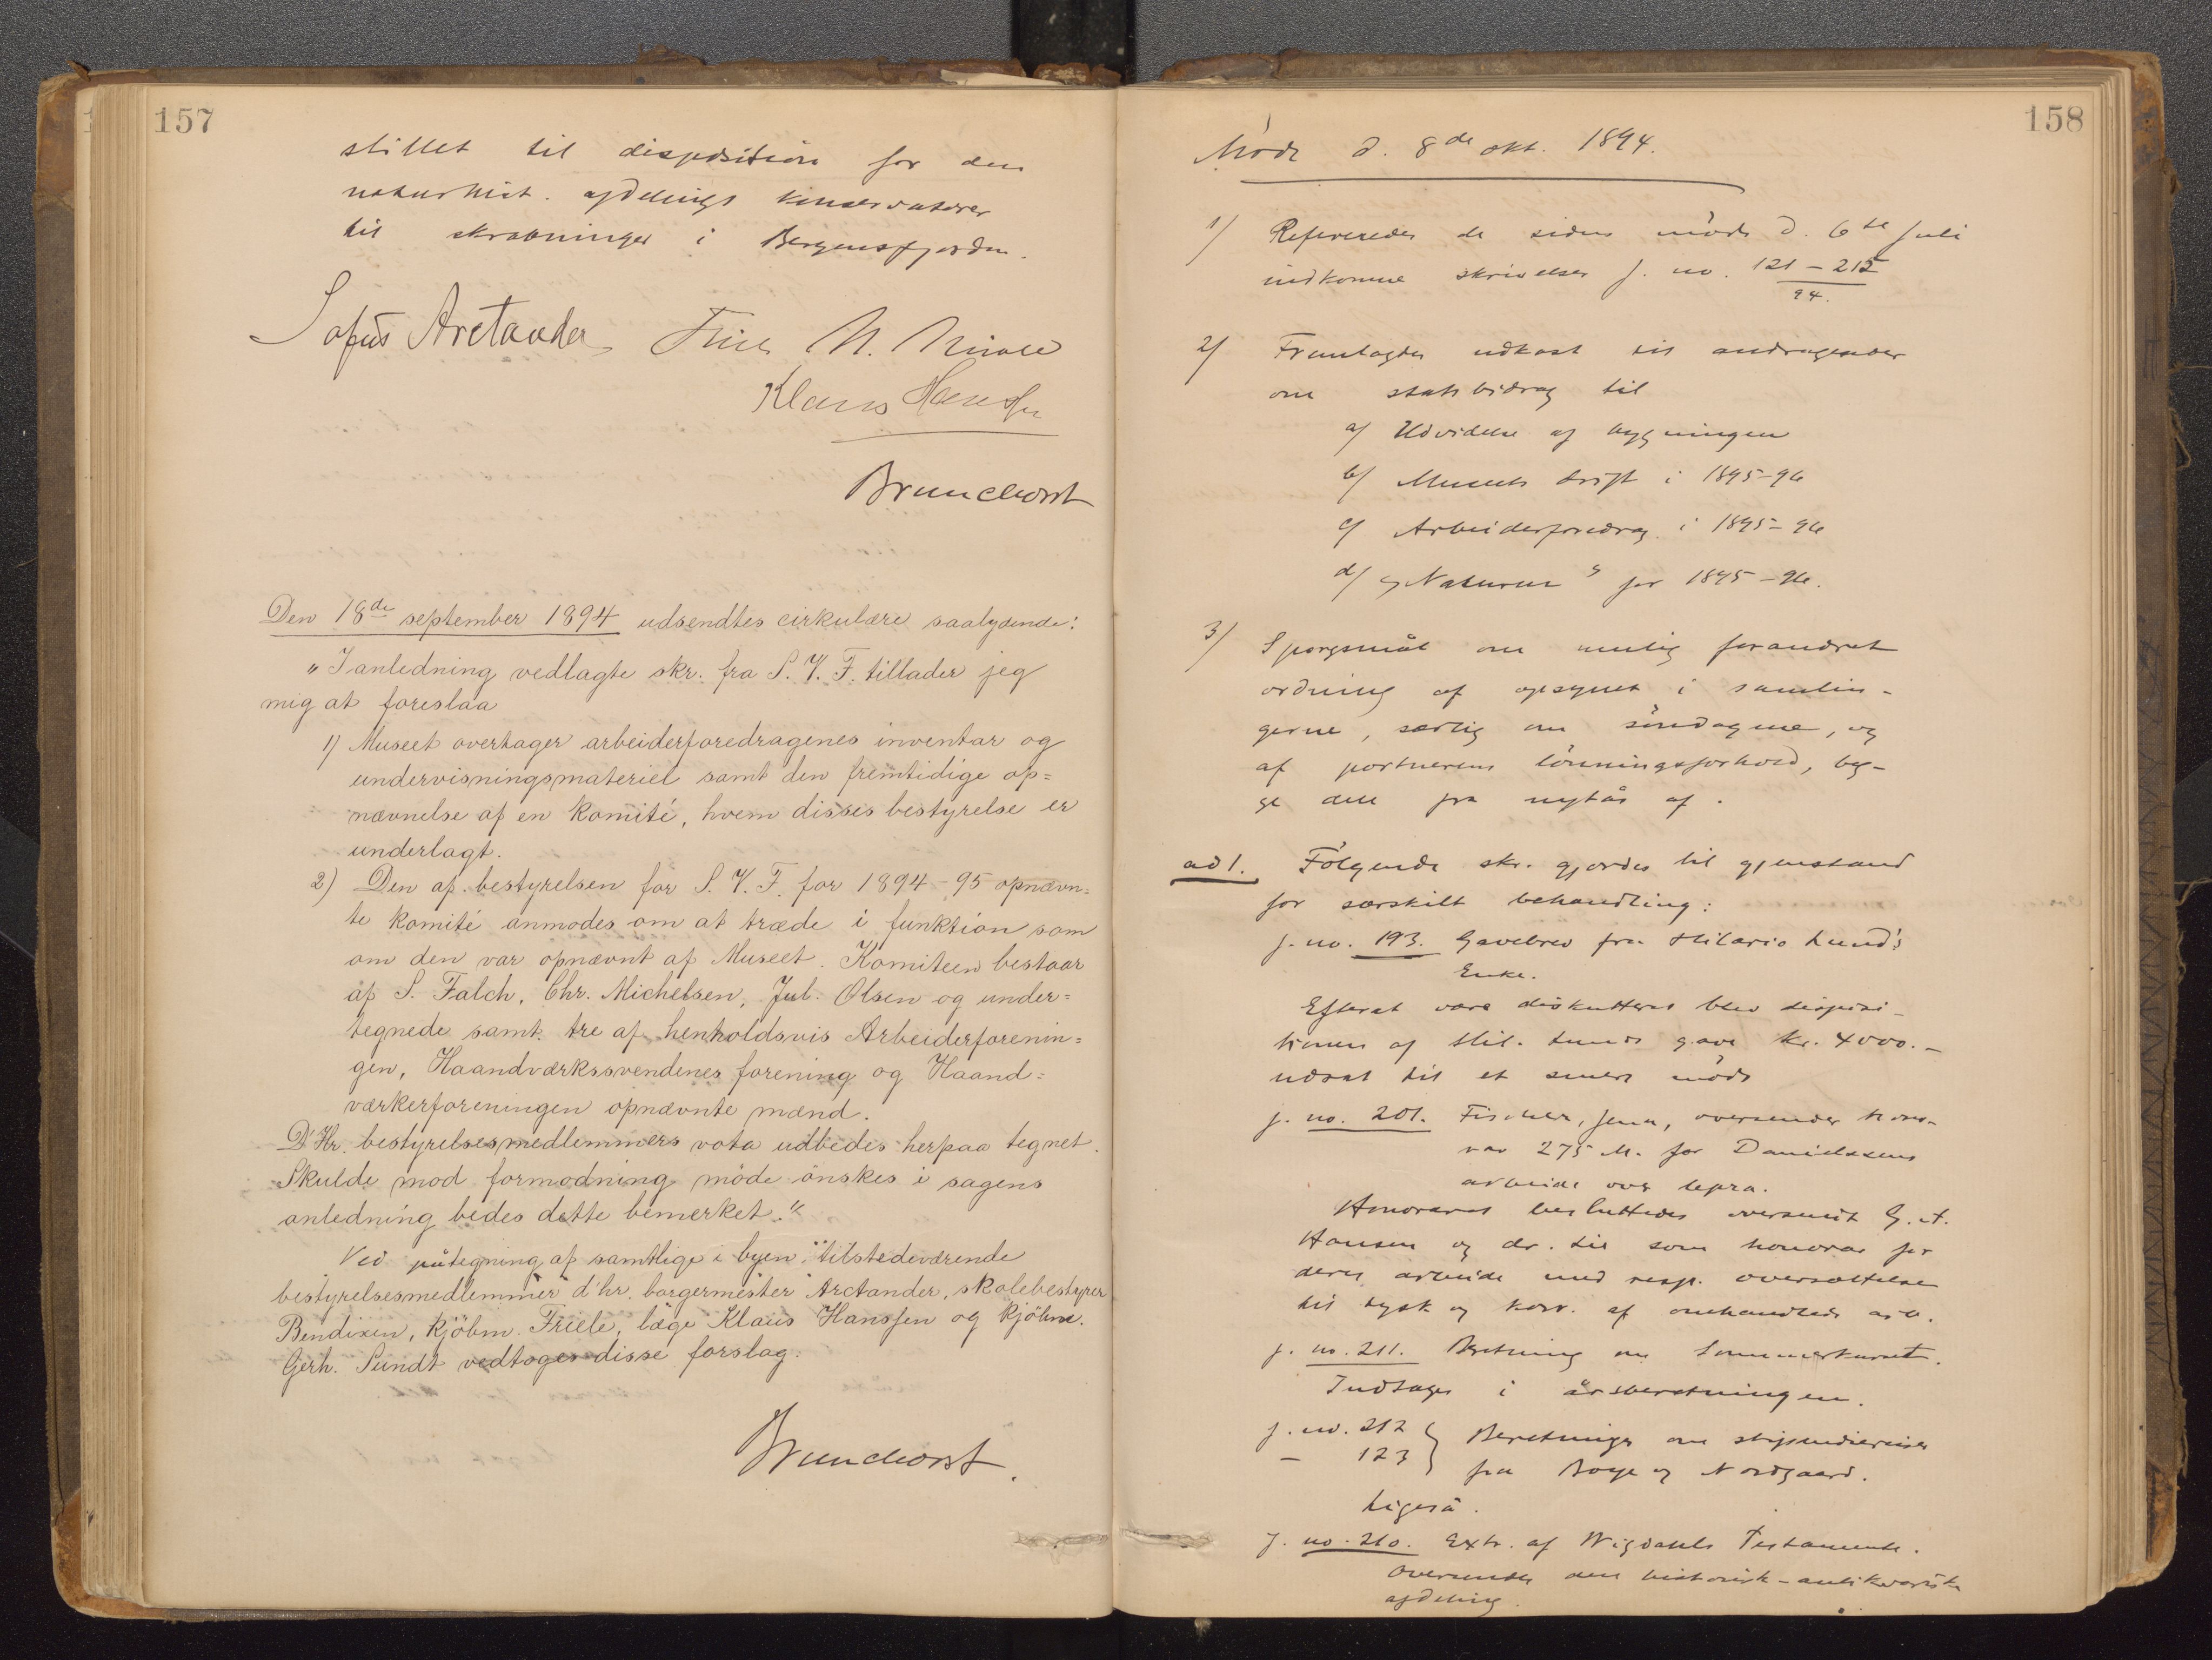 157
stillet til disposition for den
naturhist. afdelings konservatorer
til skrabninger i Bergensfjorden.
Sofus Arctander
Klaus Hanssen
Brunchorst
Den 18de september 1894 udsendtes cirkulære saalydende:
"I anledning vedlagte skr. fra S. V. F. tillader jeg
mig at foreslaa
1) Museet overtager arbeiderforedragenes inventar og
undervisningsmateriel samt den fremtidige op=
nævnelse af en komité, hvem disses bestyrelse er
underlagt.
2) Den af bestyrelsen for S. V. F. for 1894-95 opnævn=
te komité anmodes om at træde i funktion som
om den var opnævnt af Museet. Komiteen bestaar
af S. Falch, Chr. Michelsen, Jul. Olsen og under=
tegnede samt tre af henholdsvis Arbeiderforenin=
gen, Haandværkssvendenes forening og Haand=
værkerforeningen opnævnte mænd.
D'Hr. bestyrelsesmedlemmers vota udbedes herpaa tegnet.
Skulde mod formodning möde önskes i sagens
anledning bedes dette bemerket."
Ved påtegning af samtlige i byen tilstedeværende
bestyrelsesmedlemmer d'hr. borgermester Arctander, skolebestyrer
Bendixen, kjöbm. Friele, læge Klaus Hanssen og kjöbm.
Gerh. Sundt vedtoges disse forslag.
Brunchorst.
158
Möde d. 8de okt. 1894.
1/ Refereredes de siden möde d. 6te juli
indkomne skrivelser j. no. 121-215
94.
2/ Fremlagdes udkast til andragender
om statsbidrag til
a/ Udvidelse af bygningen
b/ Museets drift i 1895-96
c/ Arbeiderforedrag i 1895-96
d/ "Naturen" for 1895-96.
3/ Spörgsmål om mulig forandret
ordning af opsynet i samlin-
gerne, særlig om söndagene, og
af portnerens lönningsforhold, beg-
ge dele fra nytår af.
ad 1. Fölgende skr. gjordes til gjenstand
for særskilt behandling:
j. no. 193. Gavebrev fra Hilario Lund's
Enke.
Efterat være diskutteret blev disposi-
tionen af Hil. Lunds gave kr. 4000.-
udsat til et senere möde
j. no. 201. Fischer, Jena, oversender hono-
rar 275 M. for Danielssens
arbeide over lepra.
Honoraret besluttedes oversendt G. A.
Hansen og dr. Lie som honorar for
deres arbeide med resp. oversættelse
til tysk og korr. af omhandlede arb.
j. no. 211. Beretning om Sommerkurset.
Indtages i årsberetningen.
j. no. 212 } Beretninger om stipendiereiser
- 123 } fra Boye og Nordgaard.
Ligeså.
j. no. 210. Extr. af Wigdahls Testamente.
Oversendes den historisk-antikvariske
afdeling.